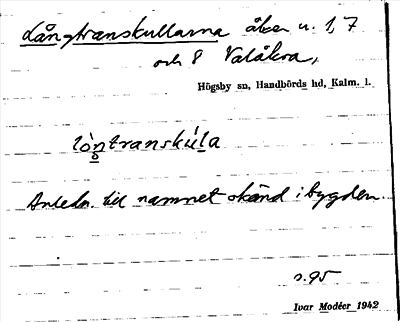 Långtranskullarna åbör u. 1, 7
och 8 Valåkra,
Högsby sn, Handbörds hd, Kalm. l.
lòn̥transkúla
Anledn. till namnet okänd i bygden
s. 95
Ivar Modéer 1942